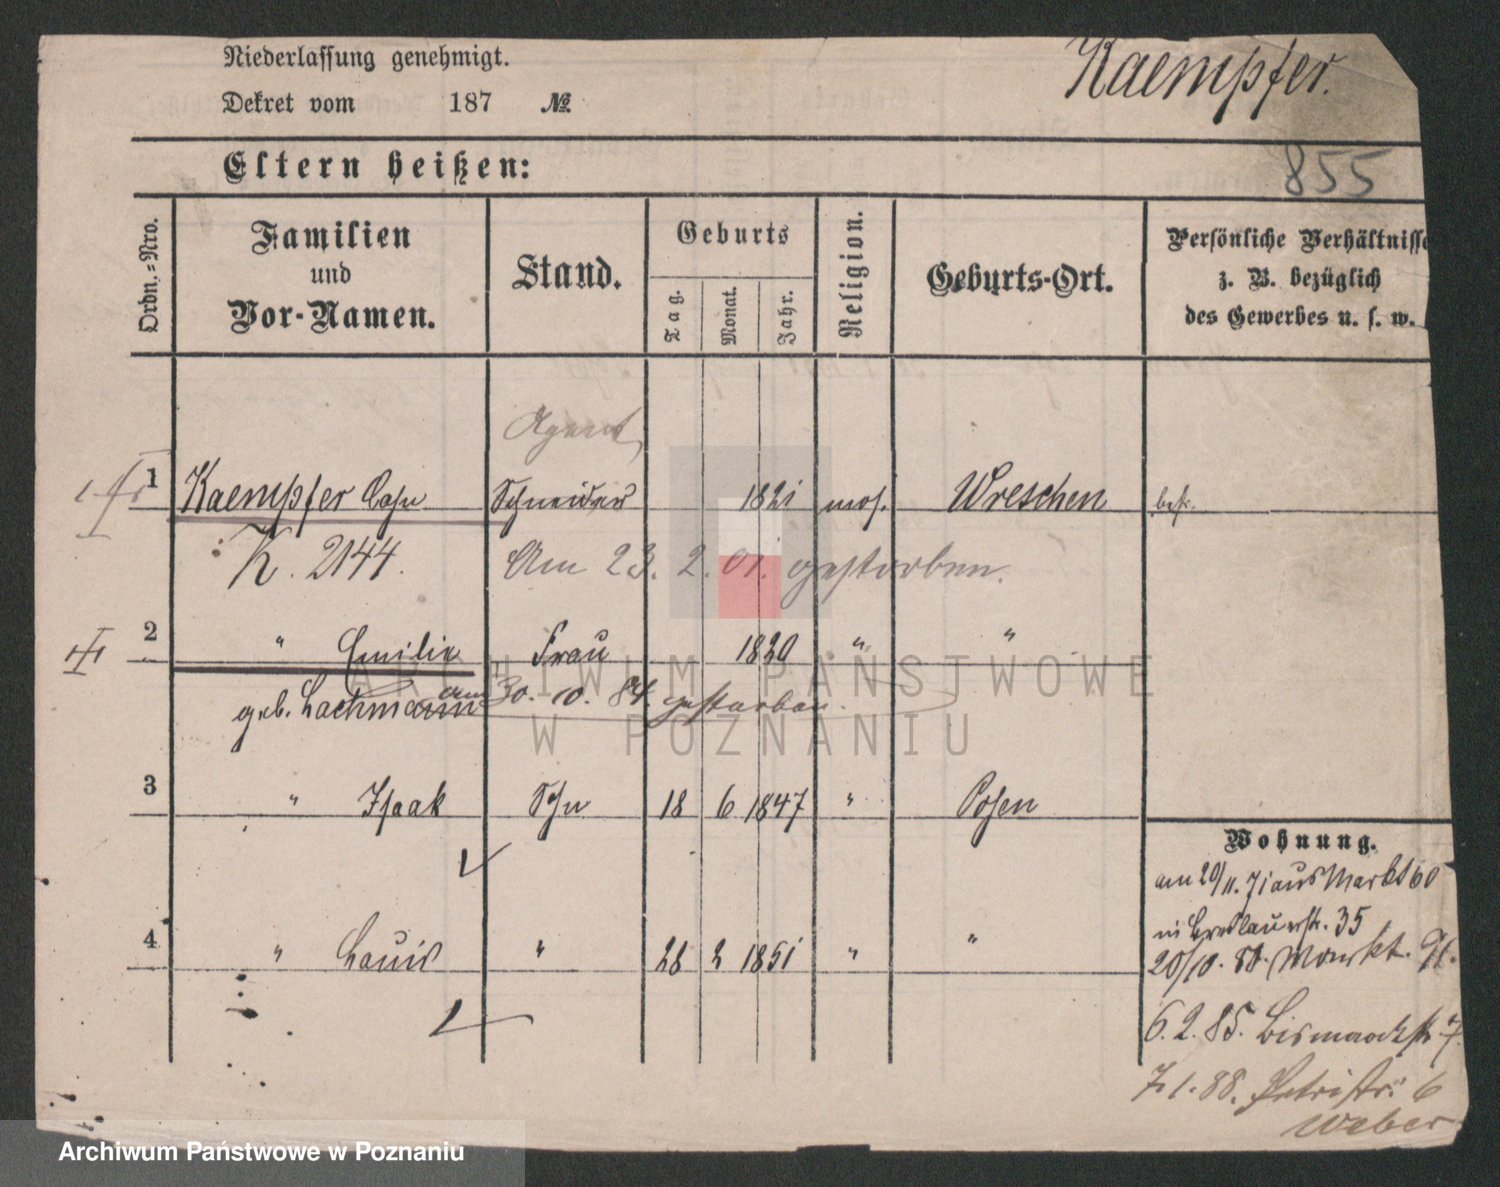 Niederlassung genehmigt.
Kaempfer.
Dekret vom 187 №
855
Eltern heißen:
Ordn.=Nro.
Familien
und
Vor-Namen.
Stand.
Geburts
Tag.
Monat.
Jahr.
Religion.
Geburts-Ort.
Persönliche Verhältnisse
z. B. bezüglich
des Gewerbes u. s. w.
Agent
1 Kaempfer Casn Schneider 1821 mos. Wreschen
K. 2144. Am 23. 2. 01. gestorben.
2 " Emilie Frau 1820 " "
geb. Lachmann am 30. 10. 84. gestorben.
3 " Isaak Sohn 18 6 1847 " Posen
4 " Louis " 28 2 1851 " "
Wohnung.
am 20/11. 71 aus Markt 60
in Breslauerstr. 35
20/10. 80. Markt. 91.
6. 2. 85. Bismarckstr. 7.
7. 1. 88. Petristr. 6
Weber
ARCHIWUM PAŃSTWOWE
W POZNANIU
Archiwum Państwowe w Poznaniu